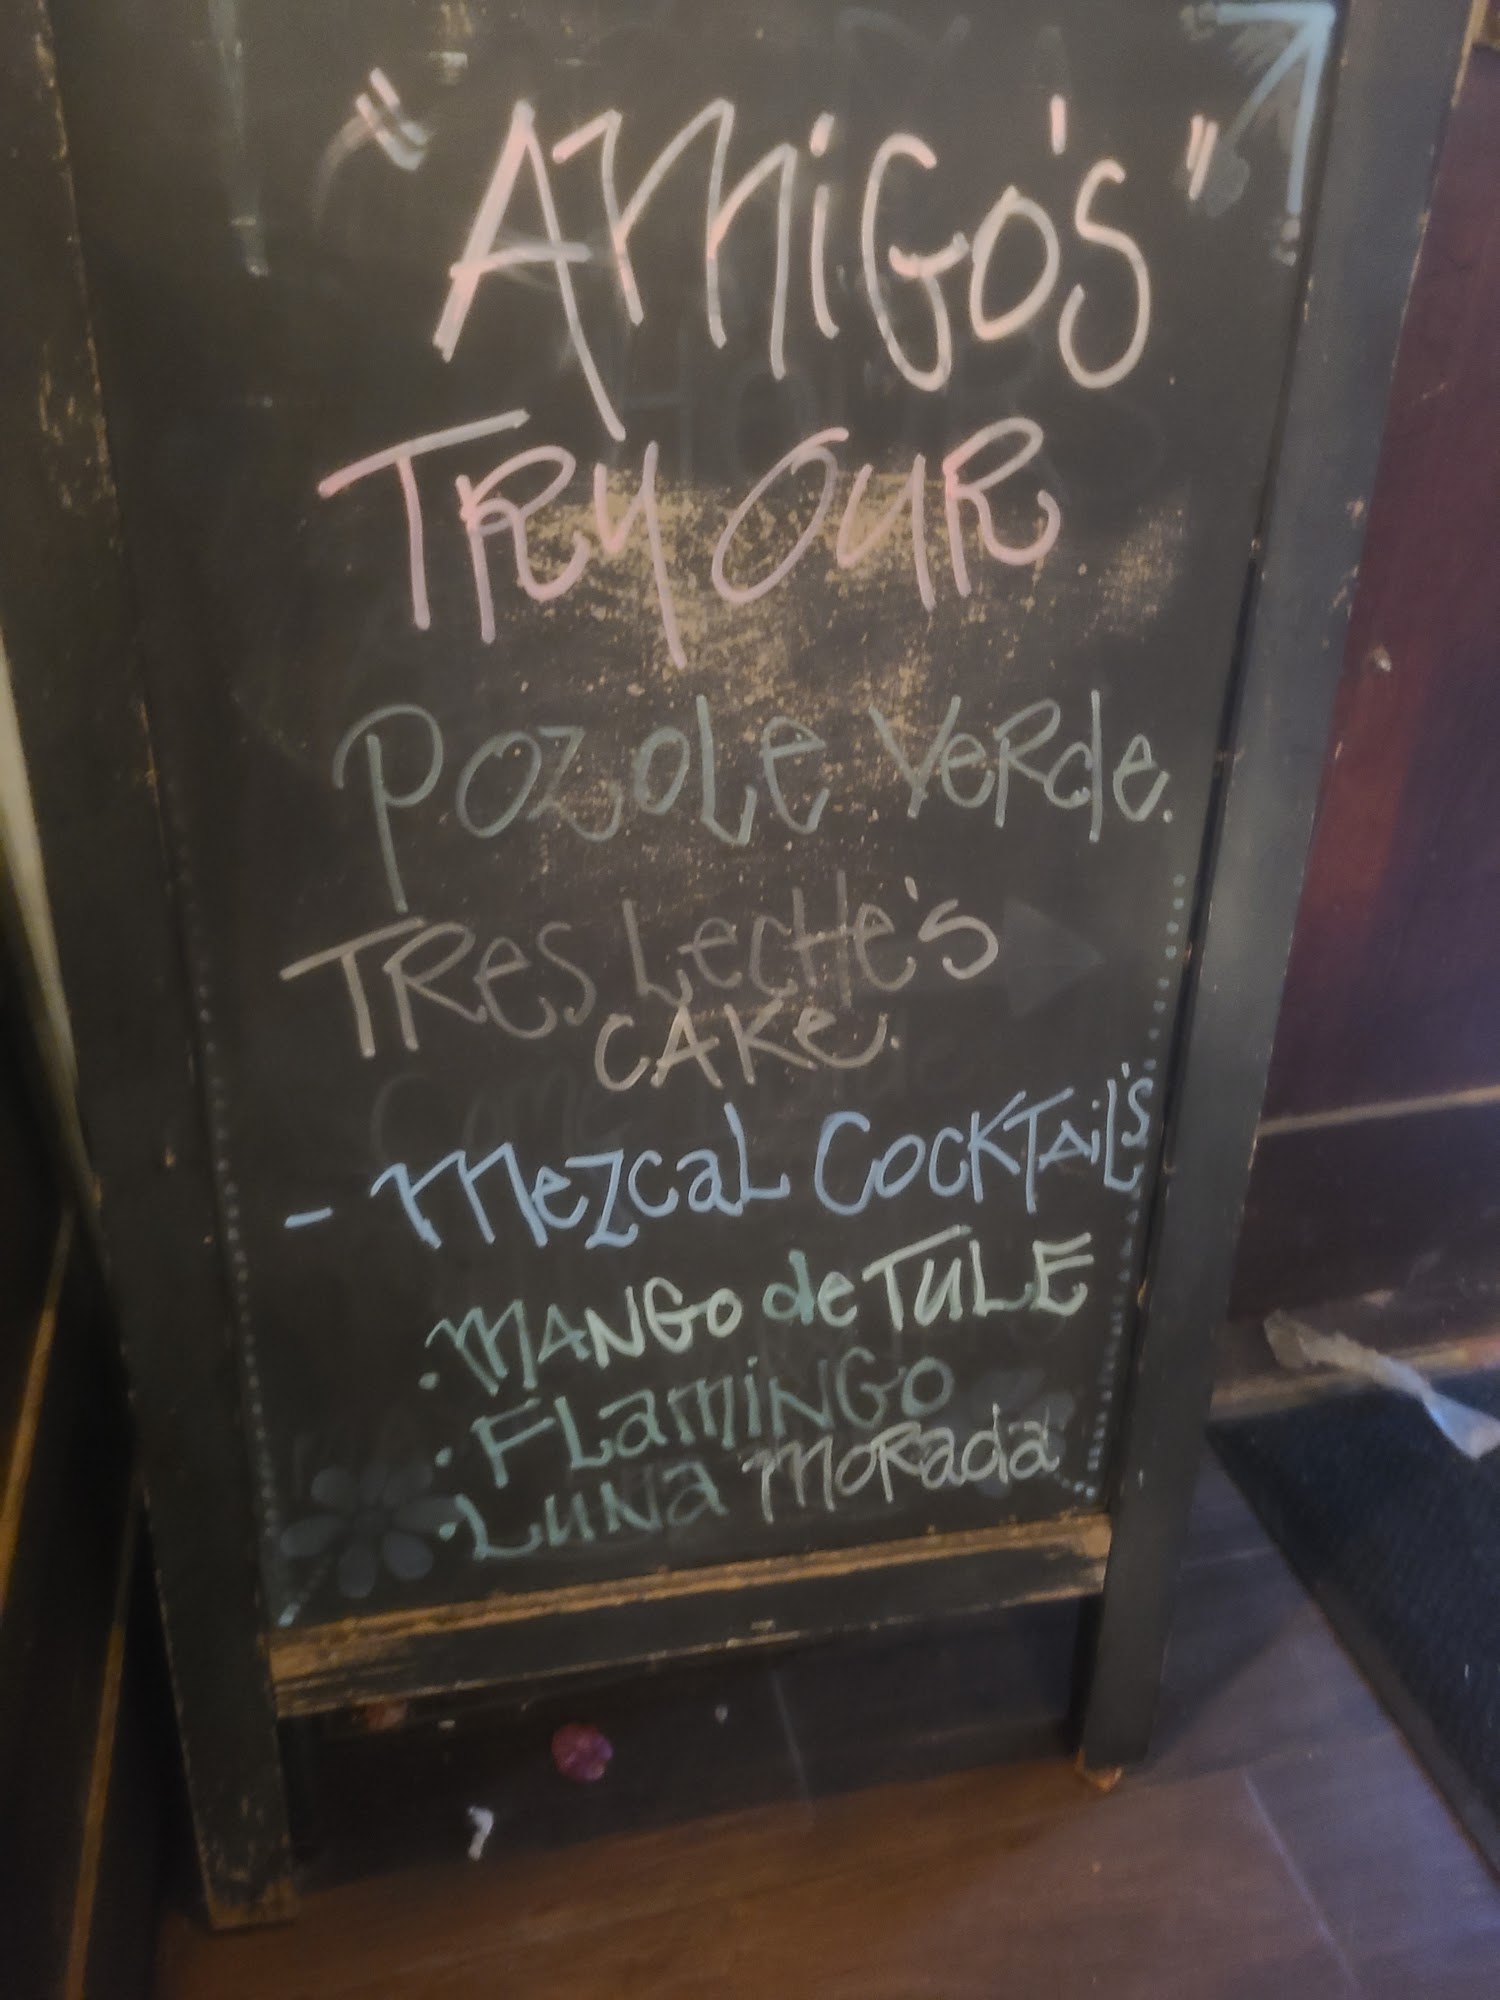 "AMIGO'S"
TRY OUR
POZOLE VERDE.
TRES LECHE'S
CAKE.
- MEZCAL COCKTAIL'S
. MANGO de TULE
. FLAMINGO
. LUNA MORADA